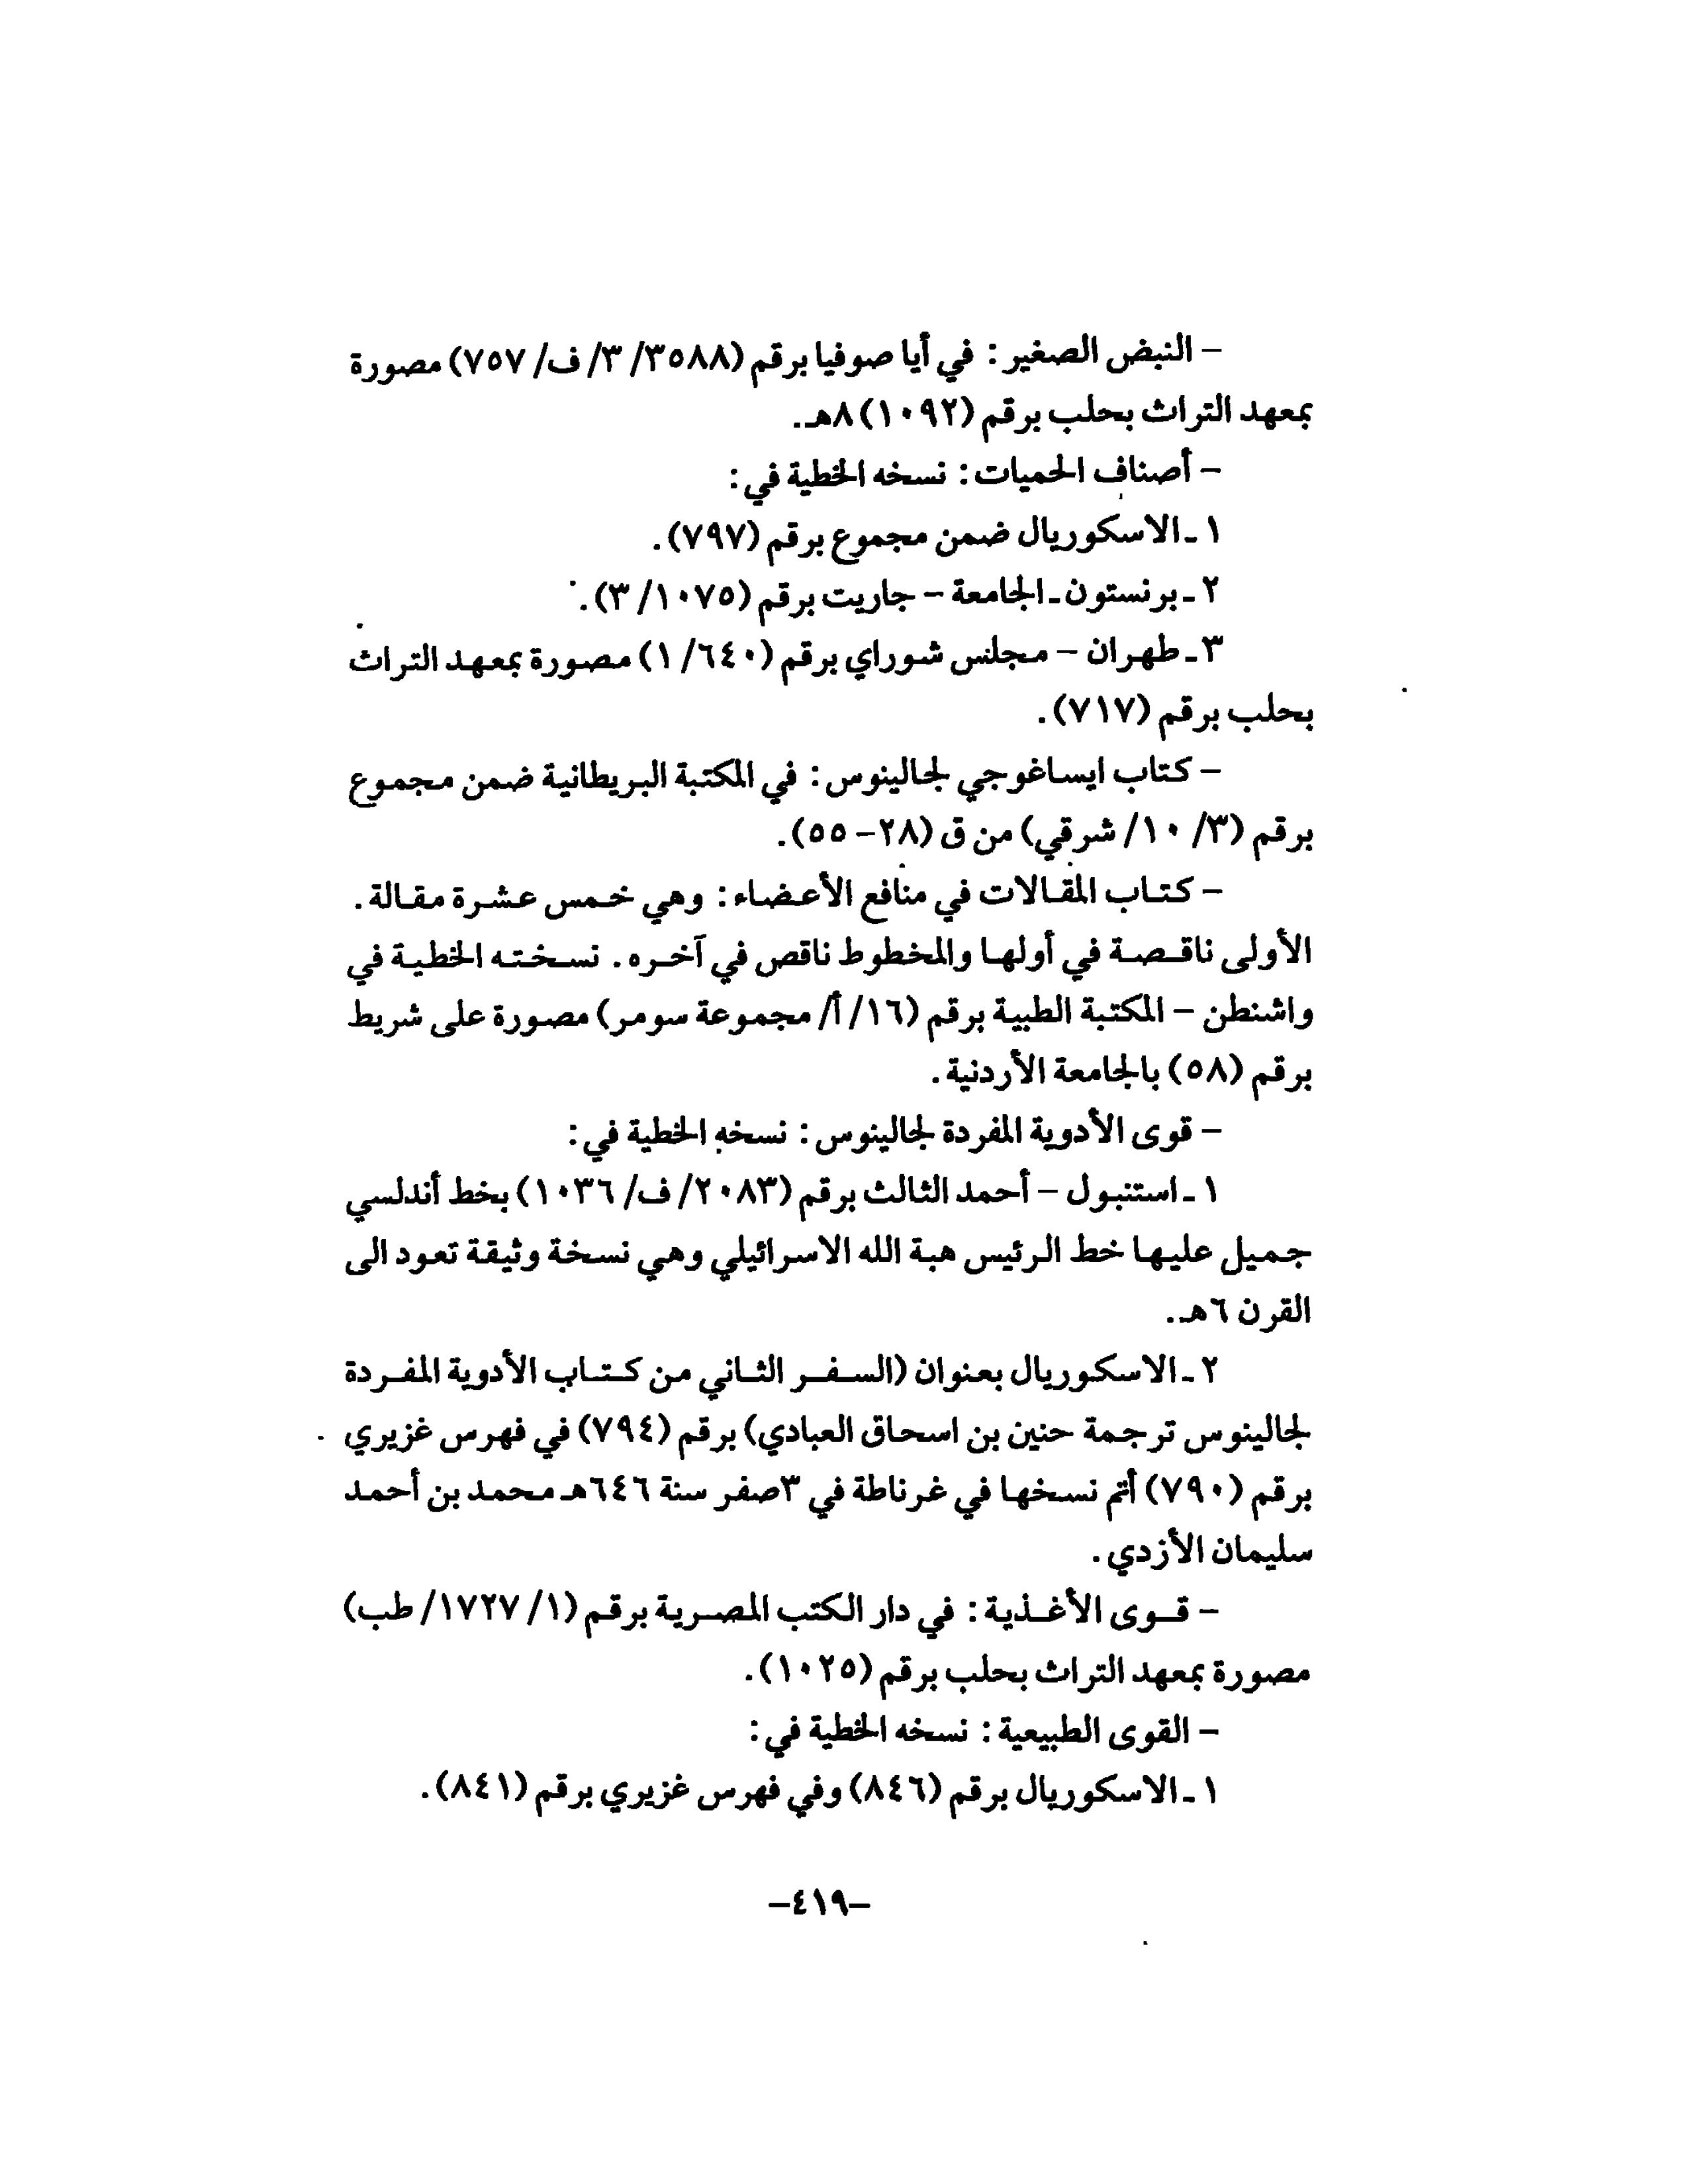 – النبض الصغير: في أيا صوفيا برقم (٣٥٨٨/ ٣/ ف/ ٧٥٧) مصورة
بمعهد التراث بحلب برقم (١٠٩٢) ٨هـ.
– أصناف الحميات: نسخه الخطية في:
١ ـ الاسكوريال ضمن مجموع برقم (٧٩٧).
٢ ـ برنستون ـ الجامعة – جاريت برقم (١٠٧٥/ ٣).
٣ ـ طهران – مجلس شوراي برقم (٦٤٠/ ١) مصورة بمعهد التراث
بحلب برقم (٧١٧).
– كتاب ايساغوجي لجالينوس: في المكتبة البريطانية ضمن مجموع
برقم (٣/ ١٠/ شرقي) من ق (٢٨– ٥٥).
– كتاب المقالات في منافع الأعضاء: وهي خمس عشرة مقالة.
الأولى ناقصة في أولها والمخطوط ناقص في آخره. نسخته الخطية في
واشنطن – المكتبة الطبية برقم (١٦/ أ/ مجموعة سومر) مصورة على شريط
برقم (٥٨) بالجامعة الأردنية.
– قوى الأدوية المفردة لجالينوس: نسخه الخطية في:
١ ـ استنبول – أحمد الثالث برقم (٢٠٨٣/ ف/ ١٠٣٦) بخط أندلسي
جميل عليها خط الرئيس هبة الله الاسرائيلي وهي نسخة وثيقة تعود الى
القرن ٦هـ.
٢ ـ الاسكوريال بعنوان (السفر الثاني من كتاب الأدوية المفردة
لجالينوس ترجمة حنين بن اسحاق العبادي) برقم (٧٩٤) في فهرس غزيري
برقم (٧٩٠) أتم نسخها في غرناطة في ٣صفر سنة ٦٤٦هـ محمد بن أحمد
سليمان الأزدي.
– قوى الأغذية: في دار الكتب المصرية برقم (١/ ١٧٢٧/ طب)
مصورة بمعهد التراث بحلب برقم (١٠٢٥).
– القوى الطبيعية: نسخه الخطية في:
١ ـ الاسكوريال برقم (٨٤٦) وفي فهرس غزيري برقم (٨٤١).
–٤١٩–